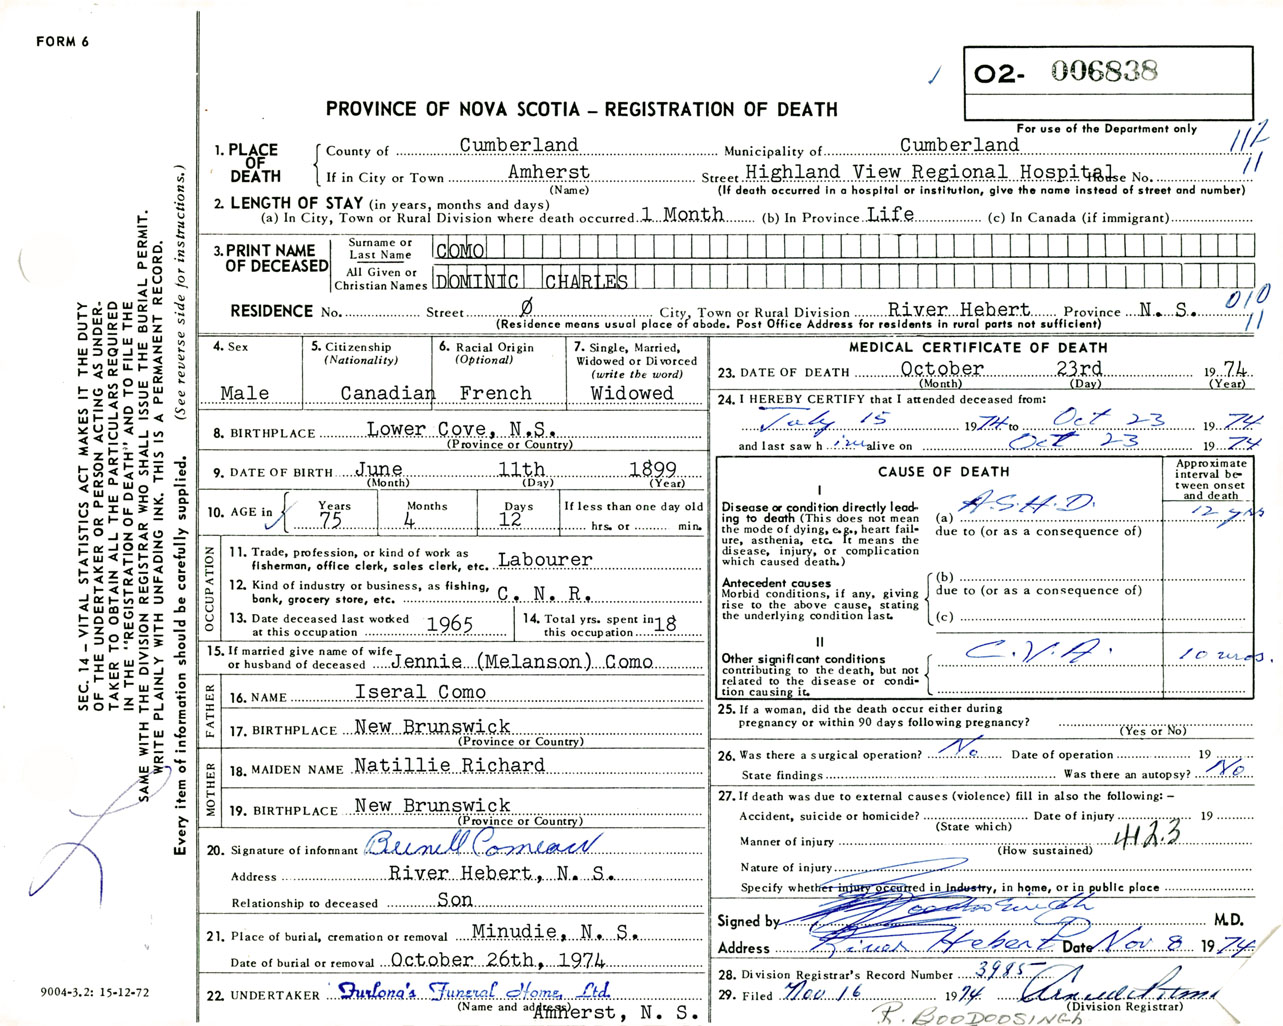 FORM 6
O2- 006838
PROVINCE OF NOVA SCOTIA – REGISTRATION OF DEATH
For use of the Department only
1. PLACE OF DEATH
County of Cumberland Municipality of Cumberland
112
11
If in City or Town Amherst Street Highland View Regional Hospital House No.
(Name) (If death occurred in a hospital or institution, give the name instead of street and number)
2. LENGTH OF STAY (in years, months and days)
(a) In City, Town or Rural Division where death occurred 1 Month (b) In Province Life (c) In Canada (if immigrant)
3. PRINT NAME OF DECEASED
Surname or Last Name COMO
All Given or Christian Names DOMINIC CHARLES
RESIDENCE No. Street Ø City, Town or Rural Division River Hebert Province N. S.
010
11
(Residence means usual place of abode. Post Office Address for residents in rural parts not sufficient)
4. Sex
Male
5. Citizenship
(Nationality)
Canadian
6. Racial Origin
(Optional)
French
7. Single, Married,
Widowed or Divorced
(write the word)
Widowed
8. BIRTHPLACE Lower Cove, N.S.
(Province or Country)
9. DATE OF BIRTH June 11th 1899
(Month) (Day) (Year)
10. AGE in
Years 75
Months 4
Days 12
If less than one day old
hrs. or min.
OCCUPATION
11. Trade, profession, or kind of work as
fisherman, office clerk, sales clerk, etc. Labourer
12. Kind of industry or business, as fishing,
bank, grocery store, etc. C. N. R.
13. Date deceased last worked
at this occupation 1965
14. Total yrs. spent in
this occupation 18
15. If married give name of wife
or husband of deceased Jennie (Melanson) Como
FATHER
16. NAME Iseral Como
17. BIRTHPLACE New Brunswick
(Province or Country)
MOTHER
18. MAIDEN NAME Natillie Richard
19. BIRTHPLACE New Brunswick
(Province or Country)
20. Signature of informant Comeau
Address River Hebert, N. S.
Relationship to deceased Son
21. Place of burial, cremation or removal Minudie, N. S.
Date of burial or removal October 26th, 1974
22. UNDERTAKER Furlong's Funeral Home, Ltd
(Name and address) Amherst, N. S.
MEDICAL CERTIFICATE OF DEATH
23. DATE OF DEATH October 23rd 1974
(Month) (Day) (Year)
24. I HEREBY CERTIFY that I attended deceased from:
July 15 1974 to Oct 23 1974
and last saw him alive on Oct 23 1974
CAUSE OF DEATH
Approximate
interval be-
tween onset
and death
I
Disease or condition directly lead-
ing to death (This does not mean
the mode of dying, e.g., heart fail-
ure, asthenia, etc. It means the
disease, injury, or complication
which caused death.)
(a) A.S.H.D. 12 yrs
due to (or as a consequence of)
Antecedent causes
Morbid conditions, if any, giving
rise to the above cause, stating
the underlying condition last.
(b)
due to (or as a consequence of)
(c)
II
Other significant conditions
contributing to the death, but not
related to the disease or condi-
tion causing it.
C.V.A. 10 mos.
25. If a woman, did the death occur either during
pregnancy or within 90 days following pregnancy?
(Yes or No)
26. Was there a surgical operation? No Date of operation 19
State findings Was there an autopsy? No
27. If death was due to external causes (violence) fill in also the following: –
Accident, suicide or homicide? Date of injury 19
(State which)
Manner of injury 4123
(How sustained)
Nature of injury
Specify whether injury occurred in Industry, in home, or in public place
Signed by Boodoosingh M.D.
Address River Hebert Date Nov 8 1974
28. Division Registrar's Record Number 3985
29. Filed Nov 16 1974
(Division Registrar)
R. BOODOOSINGH
SEC. 14 – VITAL STATISTICS ACT MAKES IT THE DUTY
OF THE UNDERTAKER OR PERSON ACTING AS UNDER-
TAKER TO OBTAIN ALL THE PARTICULARS REQUIRED
IN THE "REGISTRATION OF DEATH" AND TO FILE THE
SAME WITH THE DIVISION REGISTRAR WHO SHALL ISSUE THE BURIAL PERMIT.
WRITE PLAINLY WITH UNFADING INK. THIS IS A PERMANENT RECORD.
Every item of information should be carefully supplied. (See reverse side for instructions.)
9004-3.2: 15-12-72